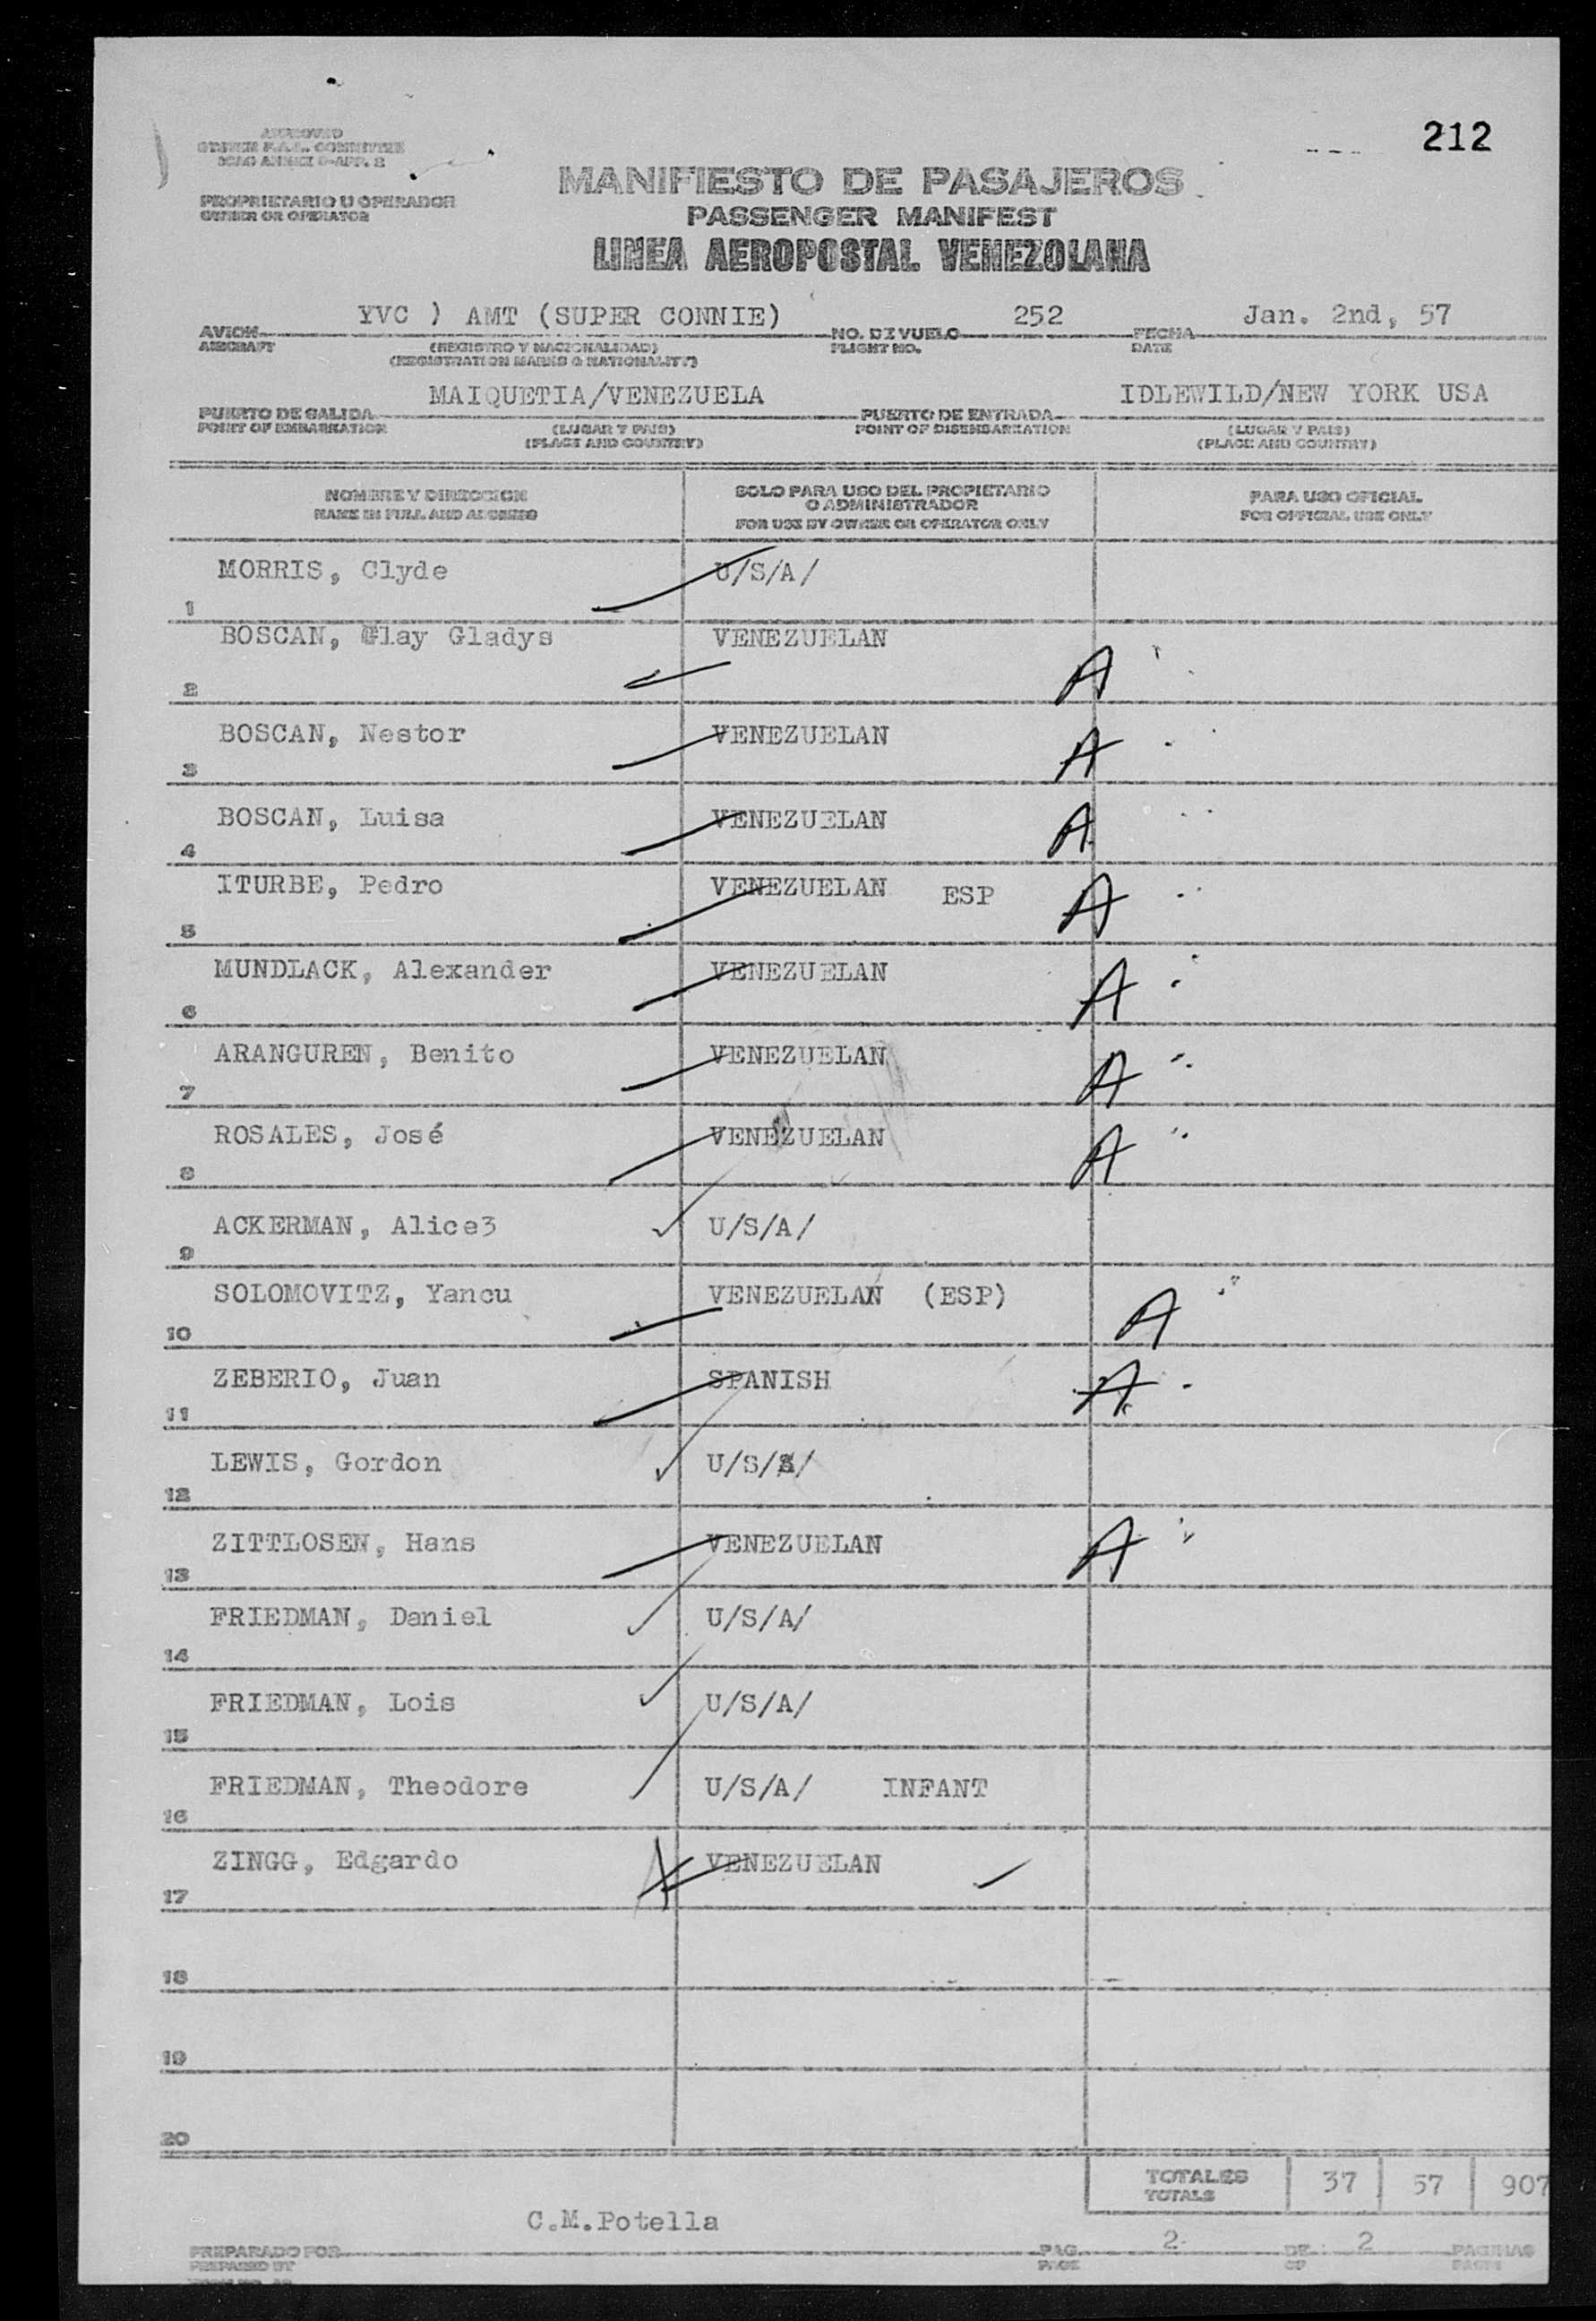 212
APPROVED
SYSTEM F.A.L. COMMITTEE
ICAO ANNEX 9-APP. 2
PROPRIETARIO U OPERADOR
OWNER OR OPERATOR
MANIFIESTO DE PASAJEROS
PASSENGER MANIFEST
LINEA AEROPOSTAL VENEZOLANA
AVION YVC ) AMT (SUPER CONNIE) NO. DE VUELO 252 FECHA Jan. 2nd, 57
AIRCRAFT (REGISTRO Y NACIONALIDAD) FLIGHT NO. DATE
(REGISTRATION MARKS & NATIONALITY)
PUERTO DE SALIDA MAIQUETIA/VENEZUELA PUERTO DE ENTRADA IDLEWILD/NEW YORK USA
POINT OF EMBARKATION (LUGAR Y PAIS) POINT OF DISEMBARKATION (LUGAR Y PAIS)
(PLACE AND COUNTRY) (PLACE AND COUNTRY)
NOMBRE Y DIRECCION SOLO PARA USO DEL PROPIETARIO O ADMINISTRADOR PARA USO OFICIAL
NAME IN FULL AND ADDRESS FOR USE BY OWNER OR OPERATOR ONLY FOR OFFICIAL USE ONLY
1 MORRIS, Clyde U/S/A/
2 BOSCAN, Clay Gladys VENEZUELAN A
3 BOSCAN, Nestor VENEZUELAN A
4 BOSCAN, Luisa VENEZUELAN A
5 ITURBE, Pedro VENEZUELAN ESP A
6 MUNDLACK, Alexander VENEZUELAN A
7 ARANGUREN, Benito VENEZUELAN A
8 ROSALES, José VENEZUELAN A
9 ACKERMAN, Alice3 U/S/A/
10 SOLOMOVITZ, Yancu VENEZUELAN (ESP) A
11 ZEBERIO, Juan SPANISH A
12 LEWIS, Gordon U/S/A/
13 ZITTLOSEN, Hans VENEZUELAN A
14 FRIEDMAN, Daniel U/S/A/
15 FRIEDMAN, Lois U/S/A/
16 FRIEDMAN, Theodore U/S/A/ INFANT
17 ZINGG, Edgardo A VENEZUELAN
18
19
20
TOTALES 37 57 907
TOTALS
C.M.Potella
PREPARADO POR PAG. 2 DE 2 PAGINAS
PREPARED BY PAGE OF PAGES